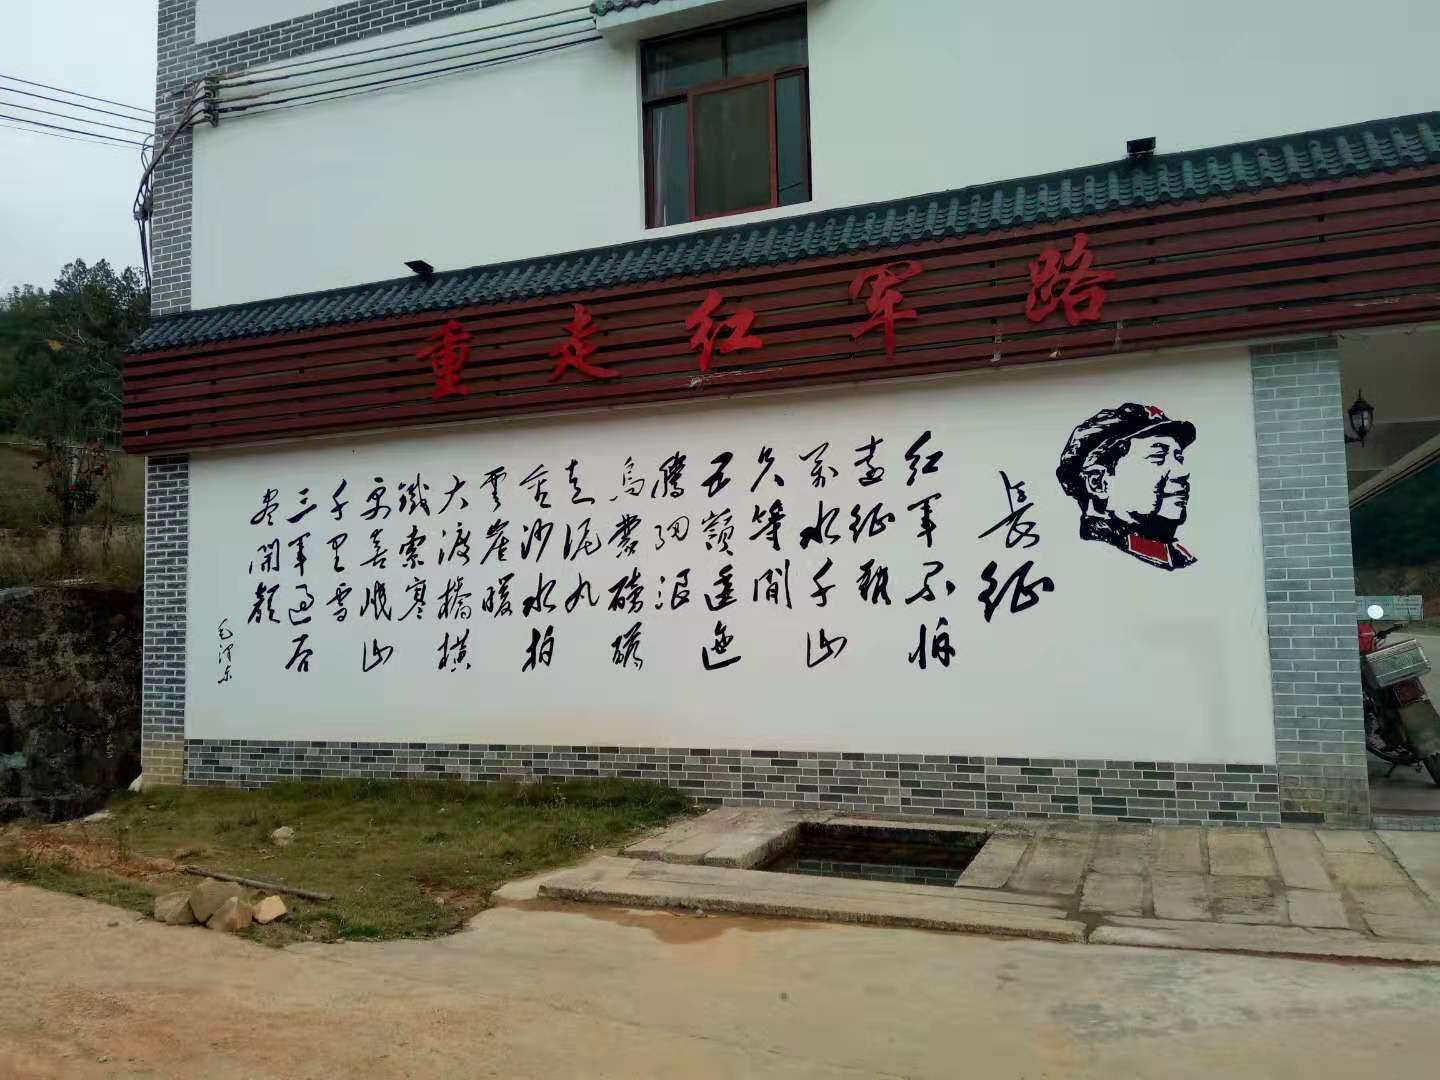 重走红军路
長征
红军不怕
远征难
萬水千山
只等閒
五嶺逶迤
腾细浪
烏蒙磅礴
走泥丸
金沙水拍
雲崖暖
大渡橋横
鐵索寒
更喜岷山
千里雪
三军过后
尽開颜
毛泽东